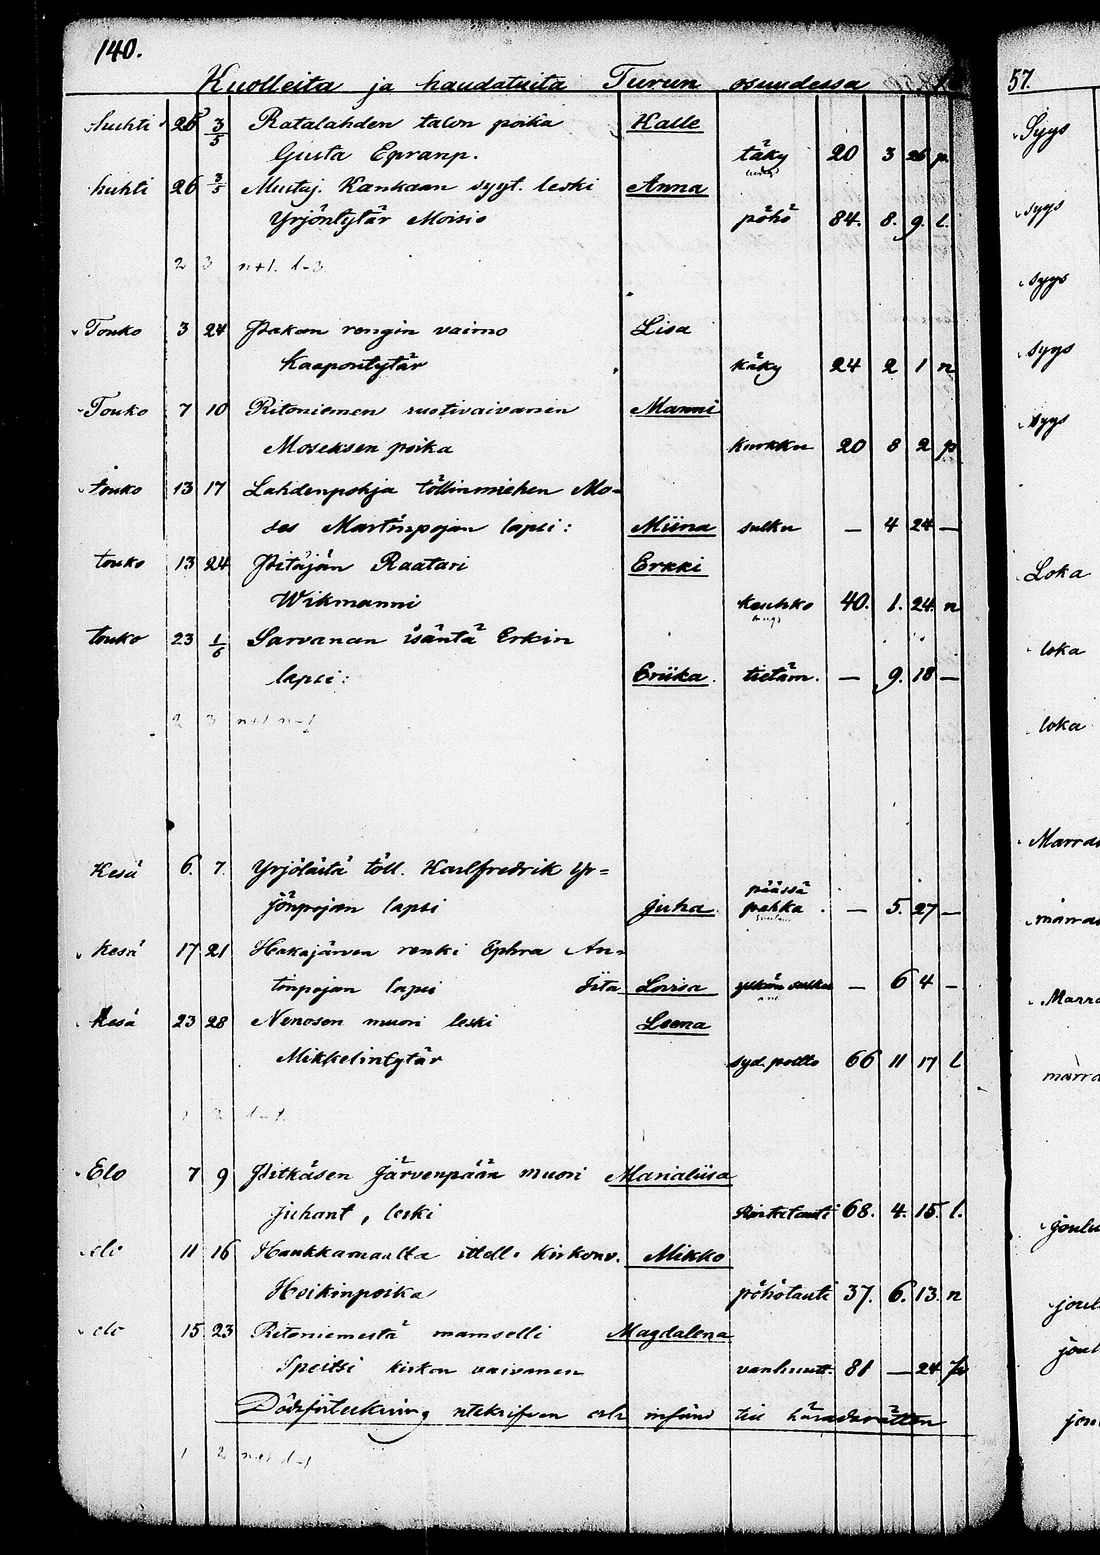 140.
Kuolleita ja haudatuita Turun osuudessa
huhti 25 3/5 Ratalahden talon poika Kalle
Gusta Epranp. täky 20 3 26 p.
huhti 26 3/5 Mustaj. Kankaan syyt. leski Anna
Yrjöntytär Moisio pöhö 84. 8. 9. l.
2 3 n+1. l-3
Touko 3 24 Pakan rengin vaimo Lisa
Kaapontytär käky 24 2 1 n
Touko 7 10 Ritoniemen ruotivaivanen Manni
Moseksen poika kurkku 20 8 2 p
touko 13 17 Lahdenpohja töllinmiehen Mo=
ses Martinpojan lapsi: Miina sulku — 4 24 —
touko 13 24 Pitäjän Raatari Erkki
Wikmanni keuhko 40. 1. 24. n
touko 23 1/6 Sarvanan isäntä Erkin
lapsi: Eriika. tietäm. — 9. 18 —
2 3 n+1 n-1
Kesä 6. 7. Yrjölästä töll. Karlfredrik Yr=
jönpojan lapsi Juha päässä
pahka — 5. 27 —
Kesä 17 21 Hakajärven renki Ephra An=
tinpojan lapsi Iita Lovisa sulku — 6 4 —
Kesä 23 28 Nenosen muori leski Leena
Mikkelintytär syd. poltto 66 11 17 l
1 2 l-1.
Elo 7 9 Pitkäsen Järvenpään muori Marialiisa
Juhant, leski Rintatauti 68. 4. 15. l.
elo 11 16 Haukkamaalta ittell. kirkonv. Mikko
Heikinpoika pöhötauti 37. 6. 13. n
elo 15 23 Ritoniemestä mamselli Magdalena
Speitsi kirkon vaivanen vanhuutt. 81 — 24 p
Dödsförteckning utskrifven och insänd till häradsrätten
1 2 n+1 l-1
57.
Syys
syys
syys
syys
syys
Loka
loka
loka
Marras
marras
Marra
marra
joulu
joul
joul
jou